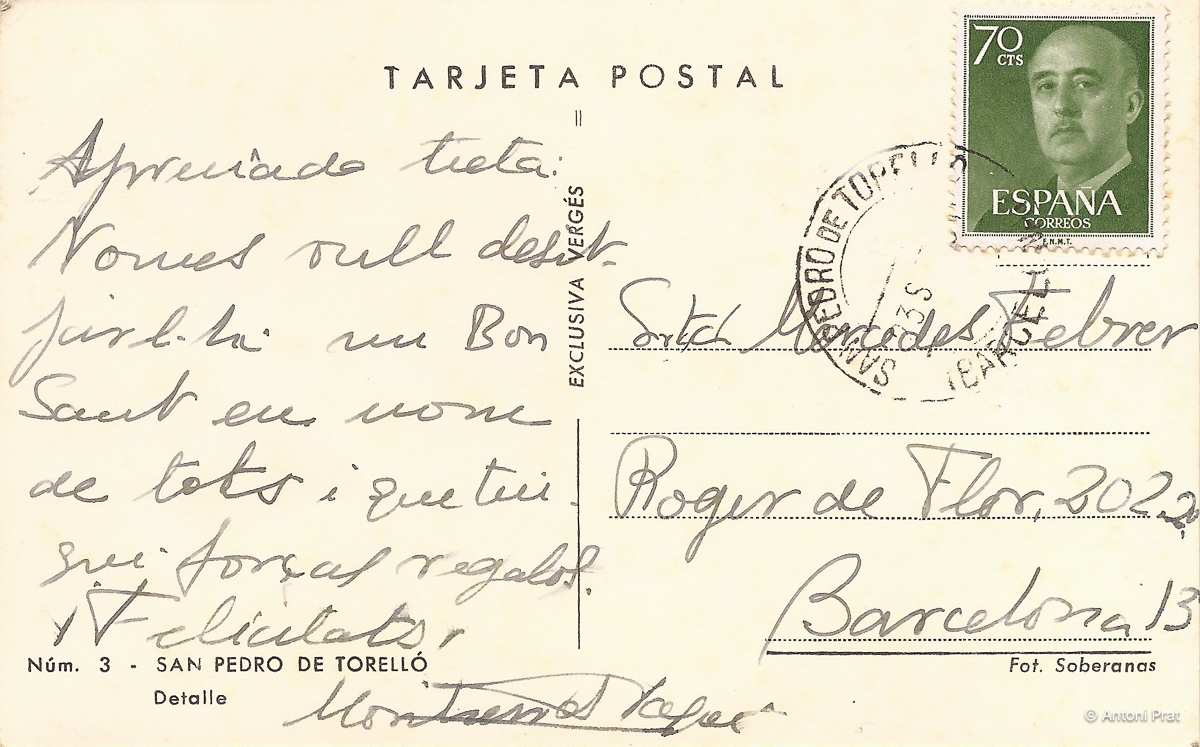 TARJETA POSTAL
70
CTS
ESPAÑA
CORREOS
F.N.M.T.
SAN PEDRO DE TORELLÓ
Apreciada tieta:
Nomes vull desit-
jar-li un Bon
Sant en nom
de tots i que tin-
gui forças regalos.
i Felicitats.
Montserrat
EXCLUSIVA VERGÉS
Srta Mercedes Febrer
Roger de Flor, 202
Barcelona 13
Núm. 3 - SAN PEDRO DE TORELLÓ
Detalle
Fot. Soberanas
© Antoni Prat